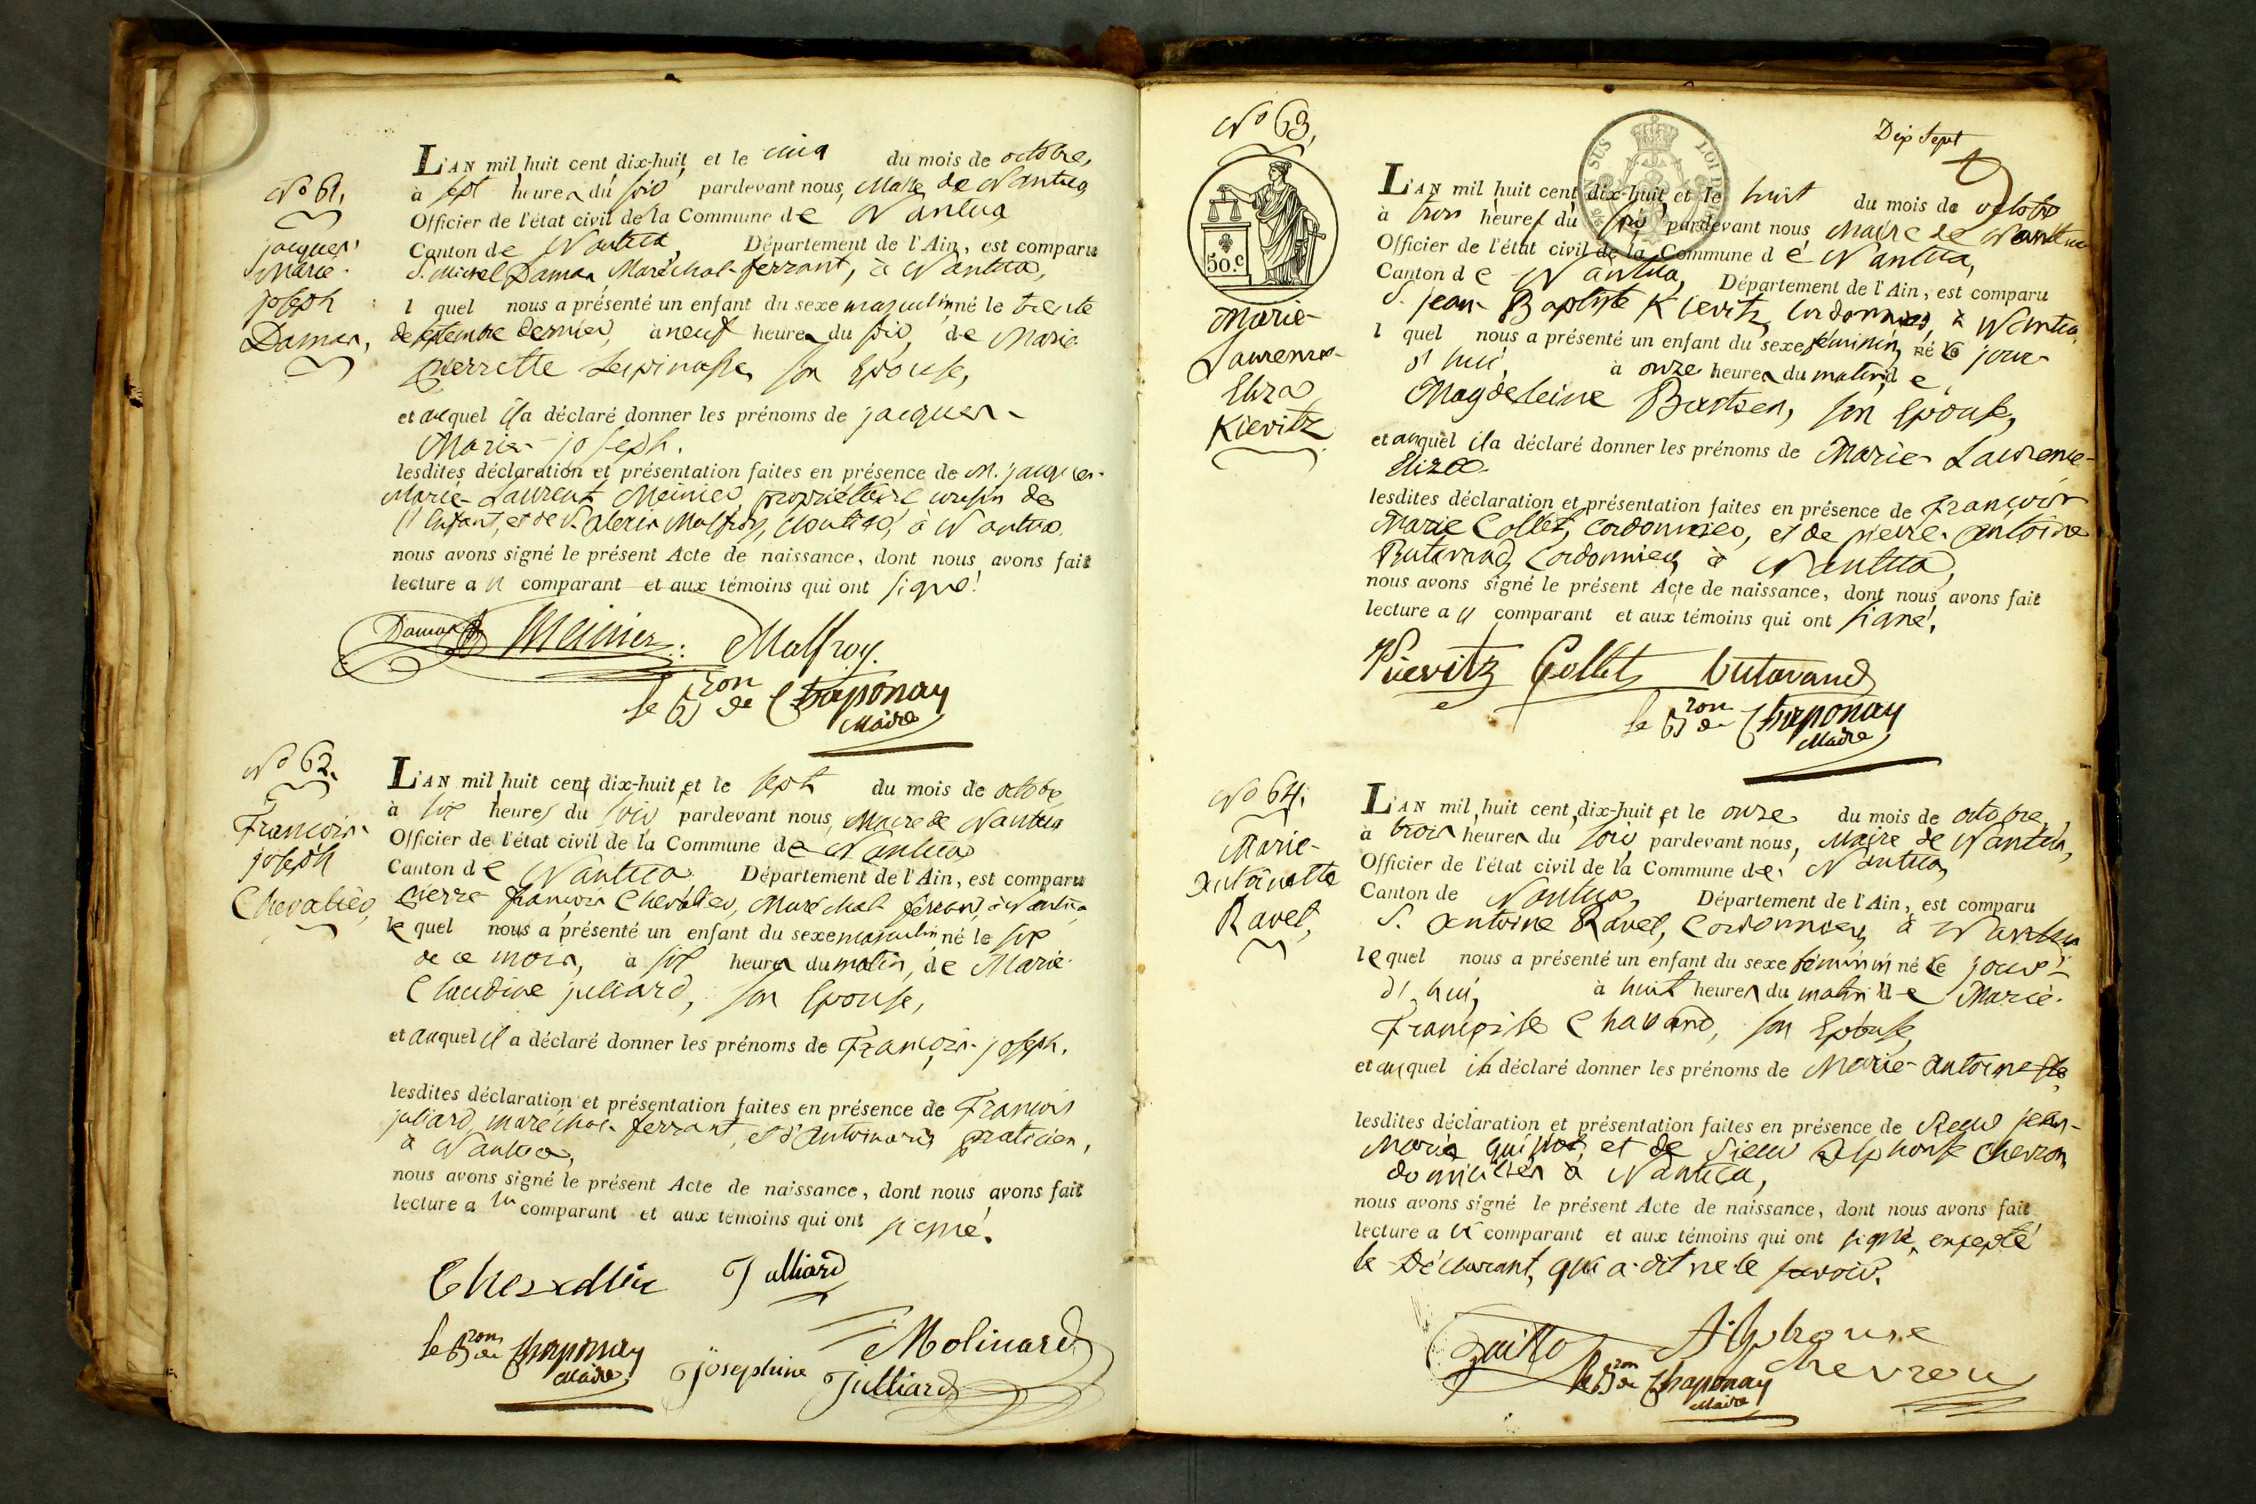 No 61.
jacques
Marie
joseph
Damas,
L'AN mil huit cent dix-huit et le cinq du mois de octobre,
à sept heures du soir, pardevant nous, Maire de Nantua
Officier de l'état civil de la Commune de Nantua
Canton de Nantua, Département de l'Ain, est comparu
S. Michel Damas Maréchal-ferrant, à Nantua,
l quel nous a présenté un enfant du sexe masculin né le trente
de septembre dernier, à neuf heures du soir, de Marie
pierrette Lespinasse, son Epouse,
et auquel il a déclaré donner les prénoms de jacques-
Marie-joseph.
lesdites déclaration et présentation faites en présence de M. jacques-
Marie-Laurent Meinier propriétaire cousin de
l'Enfant, et de S. alexis Malfroy, à Nantua.
nous avons signé le présent Acte de naissance, dont nous avons fait
lecture au comparant et aux témoins qui ont signé.
Damas Meinier Malfroy.
le Bron de Chaponay
Maire
No 62.
François-
joseph
Chevalier,
L'AN mil huit cent dix-huit et le sept du mois de octobre
à six heures du soir pardevant nous, Maire de Nantua
Officier de l'état civil de la Commune de Nantua
Canton de Nantua Département de l'Ain, est comparu
pierre françois Chevalier, Maréchal ferrant, à Nantua
le quel nous a présenté un enfant du sexe masculin né le six
de ce mois, à six heures du matin, de Marie
Claudine juliard, son Epouse,
et auquel il a déclaré donner les prénoms de François-joseph.
lesdites déclaration et présentation faites en présence de François
juliard, maréchal-ferrant, et praticien,
à Nantua,
nous avons signé le présent Acte de naissance, dont nous avons fait
lecture au comparant et aux témoins qui ont signé.
Chevallier Julliard
le Bron de Chaponay Molinard
Maire Joséphine Julliard
Dix Sept
No 63,
50.c
Marie-
Laurence-
Eliza
Kievitz
L'AN mil huit cent dix-huit et le huit du mois de octobre
à trois heures du soir pardevant nous Maire de Nantua
Officier de l'état civil de la Commune de Nantua,
Canton de Nantua, Département de l'Ain, est comparu
S. jean Baptiste Kievitz, Cordonnier, à Nantua,
l quel nous a présenté un enfant du sexe féminin, né le jour
d'hui, à onze heures du matin, de
Magdeleine Bartsen, son Epouse,
et auquel il a déclaré donner les prénoms de Marie-Laurence-
Eliza.
lesdites déclaration et présentation faites en présence de François
Marie Collet, cordonnier, et de pierre-antoine
Butavand, Cordonnier, à Nantua,
nous avons signé le présent Acte de naissance, dont nous avons fait
lecture au comparant et aux témoins qui ont signé.
Kievitz Collet butavand
le Bron de Chaponay
Maire
No 64.
Marie-
antoinette
Ravet,
L'AN mil huit cent dix-huit et le onze du mois de octobre,
à trois heures du soir, pardevant nous, Maire de Nantua,
Officier de l'état civil de la Commune de Nantua,
Canton de Nantua, Département de l'Ain, est comparu
S. antoine Ravet, Cordonnier, à Nantua
lequel nous a présenté un enfant du sexe féminin né le jour
d'hui, à huit heures du matin de Marie-
Françoise Chavand, son Epouse,
et auquel il a déclaré donner les prénoms de Marie-antoinette,
lesdites déclaration et présentation faites en présence de Sieur jean-
Marie et de Sieur alphonse Chevron
domiciliés à Nantua,
nous avons signé le présent Acte de naissance, dont nous avons fait
lecture au comparant et aux témoins qui ont signé, excepté
le Déclarant, qui a dit ne le savoir.
Alphonse
Chevron
le Bron de Chaponay
Maire